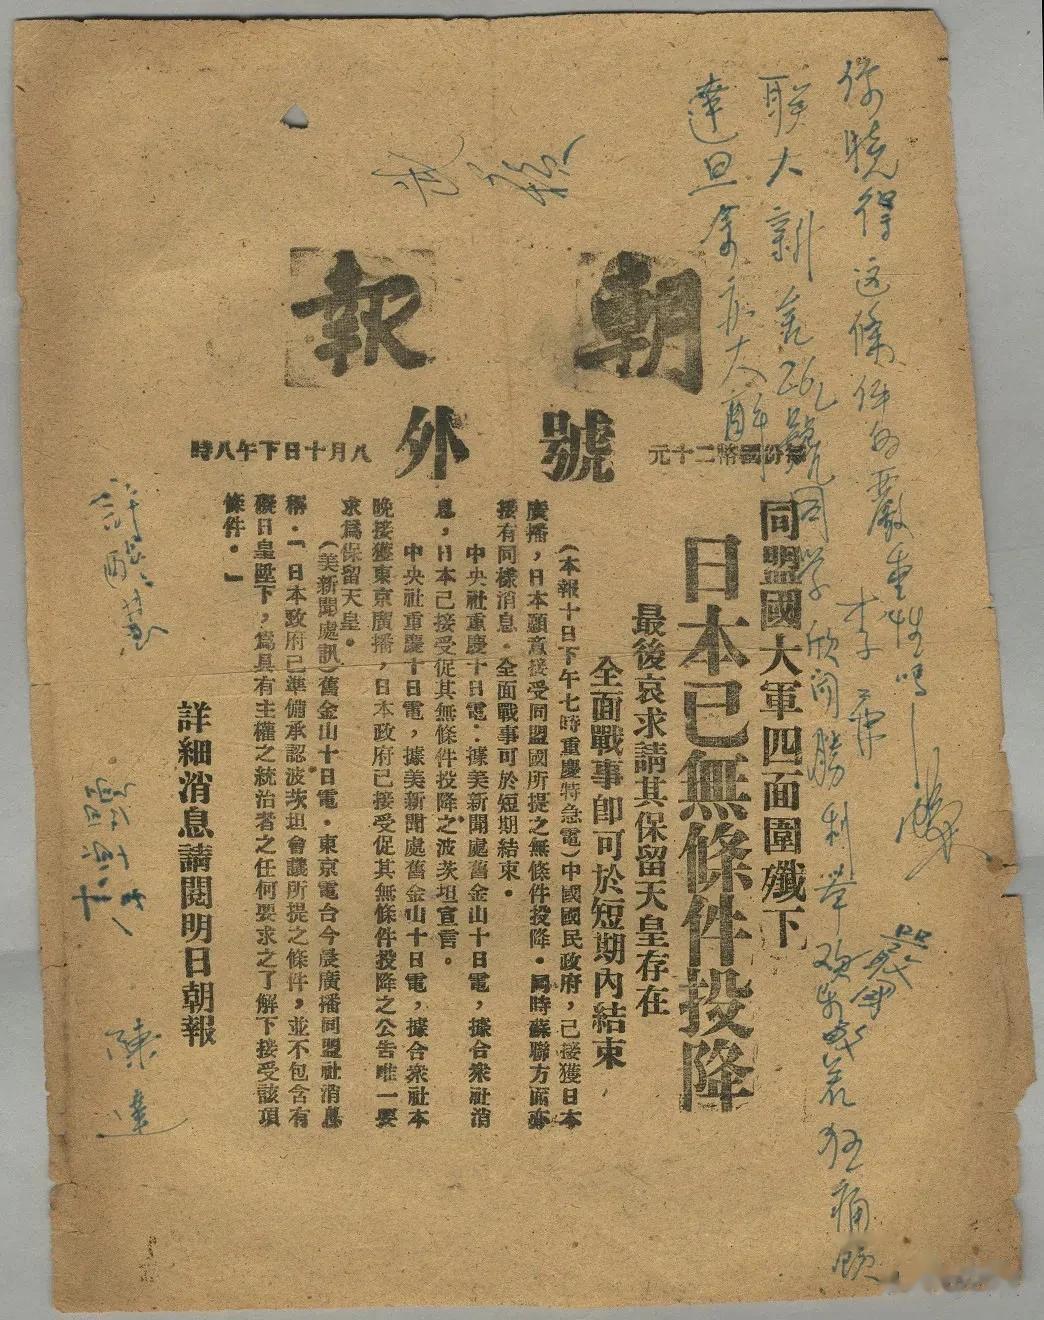 朝報
號外
每份國幣二十元
八月十日下午八時
同盟國大軍四面圍殲下
日本已無條件投降
最後哀求請其保留天皇存在
全面戰事卽可於短期內結束
(本報十日下午七時重慶特急電)中國國民政府,已接獲日本
廣播,日本願意接受同盟國所提之無條件投降・同時蘇聯方面亦
接有同樣消息・全面戰事可於短期結束・
中央社重慶十日電:據美新聞處舊金山十日電,據合衆社消
息,日本已接受促其無條件投降之波茨坦宣言。
中央社重慶十日電,據美新聞處舊金山十日電,據合衆社本
晚接獲東京廣播,日本政府已接受促其無條件投降之公告唯一要
求爲保留天皇。
(美新聞處訊)舊金山十日電・東京電台今晨廣播同盟社消息
稱・「日本政府已準備承認波茨坦會議所提之條件,並不包含有
礙日皇陛下,爲具有主權之統治者之任何要求之了解下接受該項
條件・」
詳細消息請閱明日朝報
你曉得这條件的嚴重性嗎
聯大新舍26號同學欣聞勝利舉
狂痛飲
達旦余亦大醉
陳達